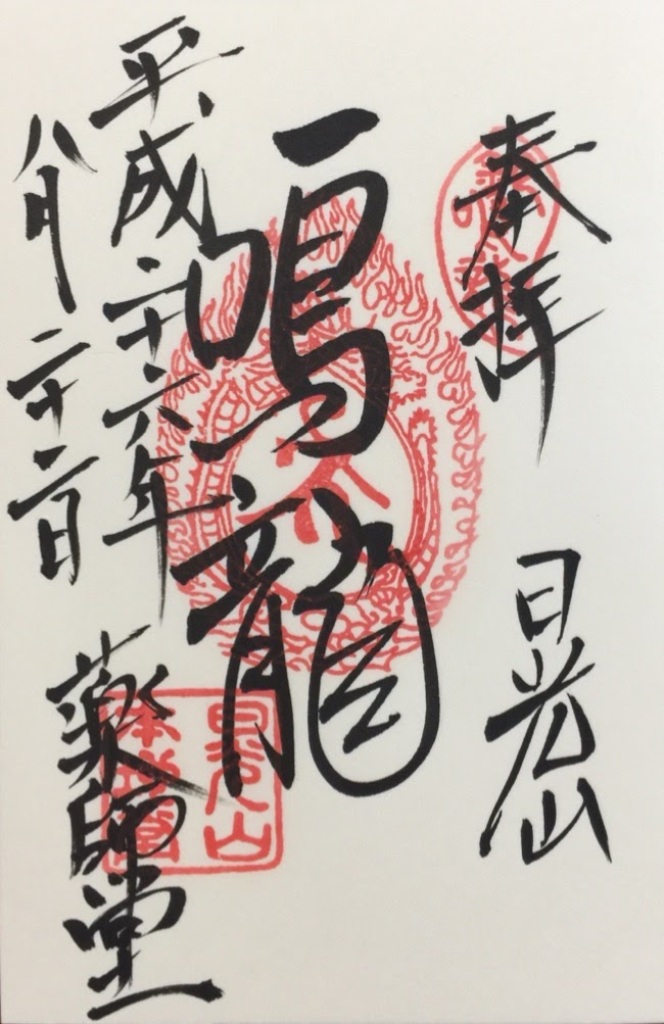 奉拝
日光山
鳴龍
平成二十六年
八月二十二日
薬師堂